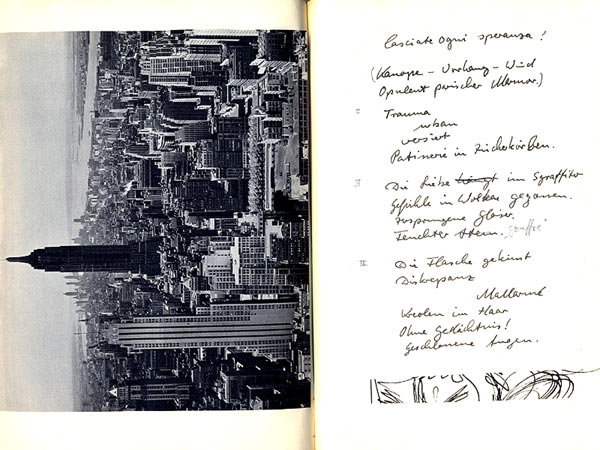 lasciate ogni speranza!
(Kanope – Vorhang – Wild
Opulent parischer Marmor.)
I
Trauma
urban
versiert
Patisserie in
II
Die Liebe hängt im Sgraffito
Gefühle in Wolken gegossen.
Zersprungene Gläser.
Feuchter Atem. "Souffle"
III
Die Flasche gekünst
Diskrepanz
Mallarmé
Kreolen im Haar
Ohne Gedächtnis!
Geschlossene Augen.